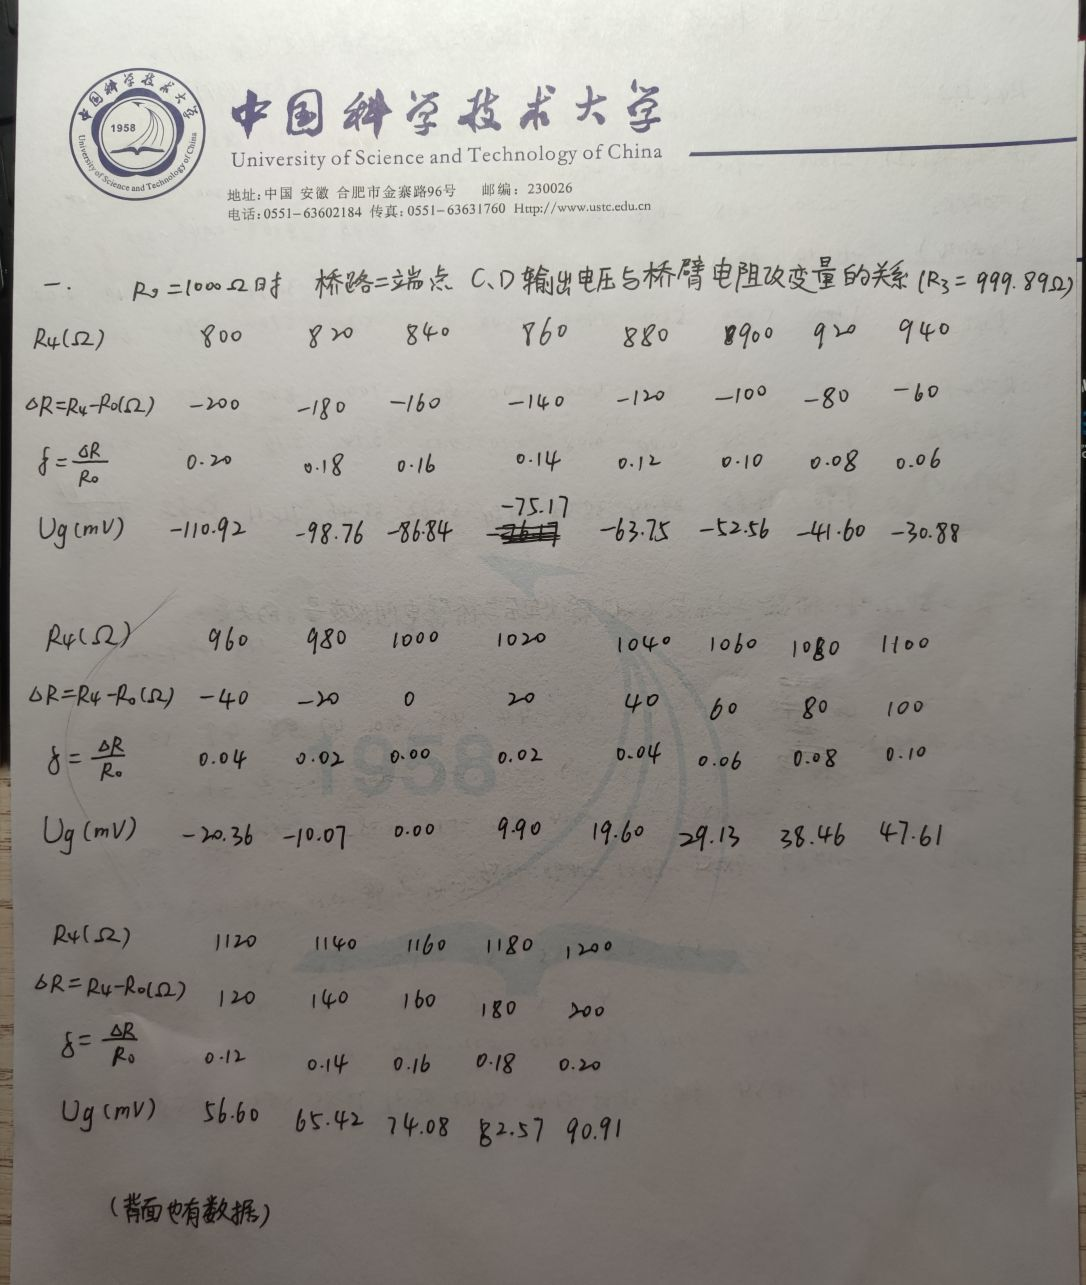 中国科学技术大学
1958
University of Science and Technology of China
中国科学技术大学
University of Science and Technology of China
地址:中国 安徽 合肥市金寨路96号 邮编: 230026
电话:0551-63602184 传真:0551-63631760 Http://www.ustc.edu.cn
一. R₀=1000Ω时 桥路二端点 C、D输出电压与桥臂电阻改变量的关系(R₃=999.89Ω)
R4(Ω) 800 820 840 860 880 900 920 940
ΔR=R4-R0(Ω) -200 -180 -160 -140 -120 -100 -80 -60
δ=ΔR/R₀ 0.20 0.18 0.16 0.14 0.12 0.10 0.08 0.06
Ug(mV) -110.92 -98.76 -86.84 -75.17 -63.75 -52.56 -41.60 -30.88
R4(Ω) 960 980 1000 1020 1040 1060 1080 1100
ΔR=R4-R₀(Ω) -40 -20 0 20 40 60 80 100
δ=ΔR/R₀ 0.04 0.02 0.00 0.02 0.04 0.06 0.08 0.10
1958
Ug(mV) -20.36 -10.07 0.00 9.90 19.60 29.13 38.46 47.61
R4(Ω) 1120 1140 1160 1180 1200
ΔR=R4-R0(Ω) 120 140 160 180 200
δ=ΔR/R₀ 0.12 0.14 0.16 0.18 0.20
Ug(mV) 56.60 65.42 74.08 82.57 90.91
(背面也有数据)